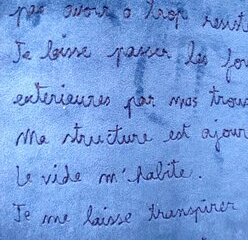 pas avoir à trop résist
Je laisse passer les for
extérieures par mes trou
Ma structure est ajour
Le vide m'habite.
Je me laisse transpirer